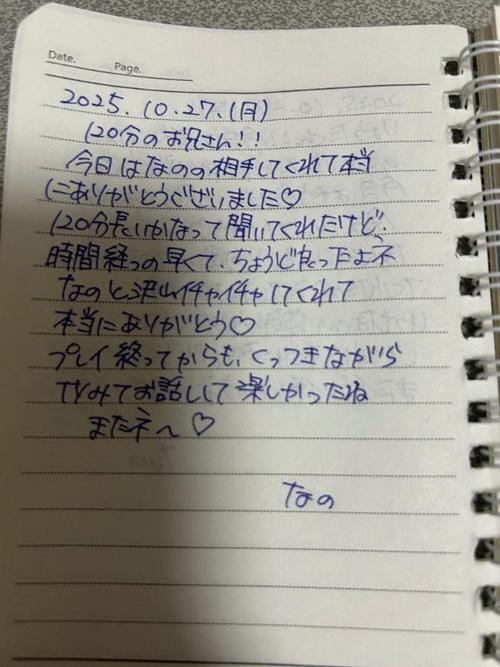 Date.
Page.
2025.10.27.(月)
120分のお兄さん!!
今日はなのの相手してくれて本当
にありがとうございました♡
120分長いかなって聞いてくれたけど、
時間経つの早くて、ちょうど良ったよネ
なのと沢山イチャイチャしてくれて
本当にありがとう♡
プレイ終ってからも、くっつきながら
TVみてお話しして楽しかったね
またネ〜♡
なの